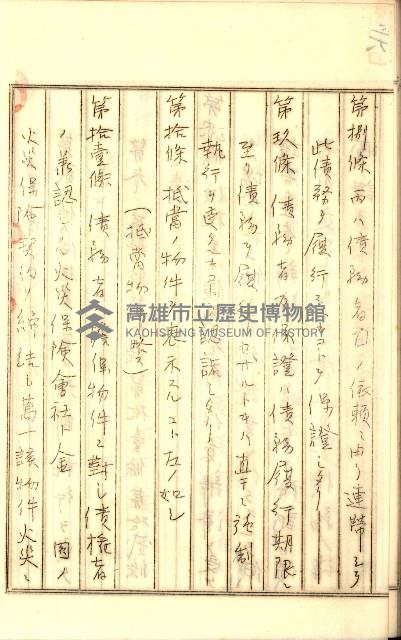 第捌條 丙ハ債務者乙ノ依頼ニ由リ連帶シテ
此債務ヲ履行スルコトヲ保證シタリ
第玖條 債務者及保證ハ債務履行期限ニ
至リ債務ヲ履行セサルトキハ直チニ強制
執行ヲ受クルコトヲ認諾シタリ
第拾條 抵當ノ物件ヲ表示スルコト左ノ如シ
(抵當物 略ス)
第拾壹條 債務者ハ擔保物件ニ對シ債權者
ノ承認スル火災保險會社ト金 圓ノ
火災保險契約ヲ締結シ萬一該物件火災ニ
高雄市立歷史博物館
KAOHSIUNG MUSEUM OF HISTORY